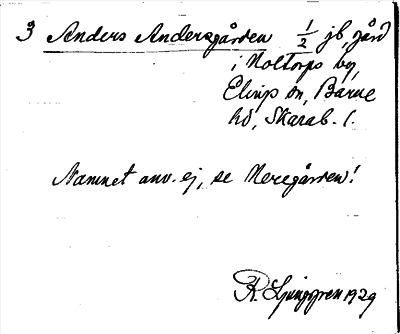 3 Anders Andersgården 1/2 jb, gård
i Noltorps by,
Eling sn, Barne
hd, Skarab. l.
Namnet anv. ej, se Neregården!
R. Ljunggren 1929